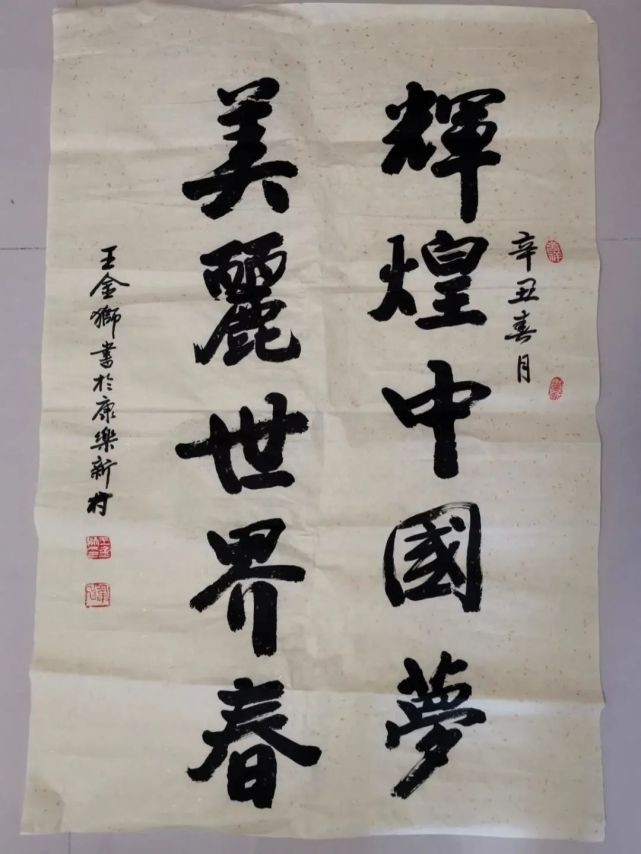 辛丑春月
輝煌中國夢
美麗世界春
王金獅書於康樂新村